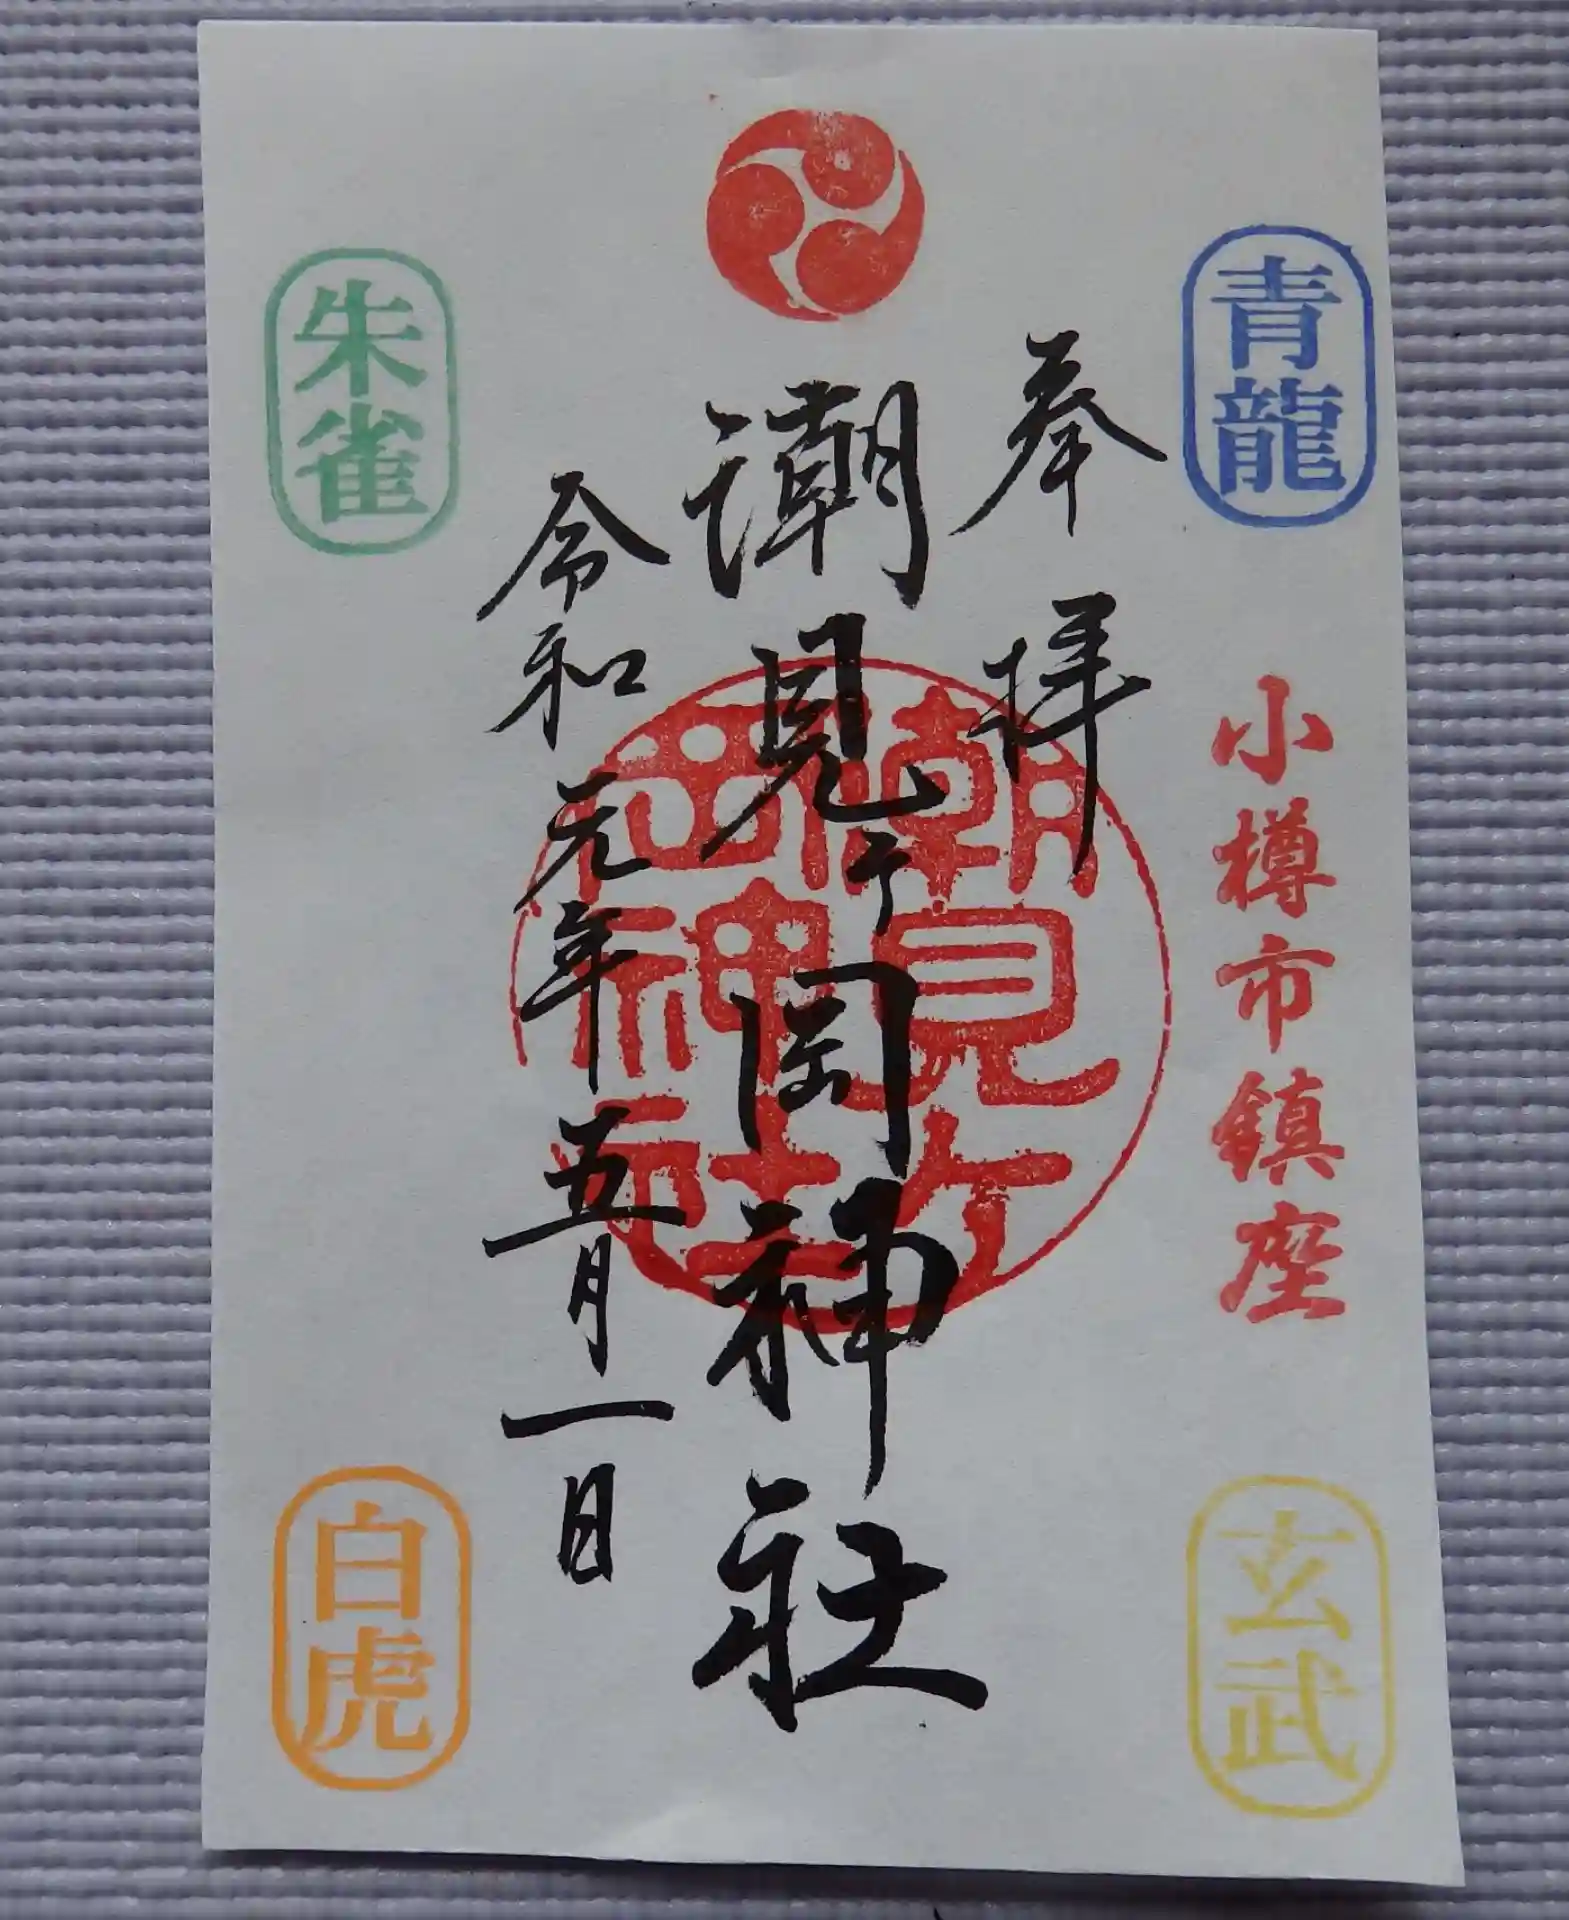 青龍
奉拝
小樽市鎮座
玄武
潮見ケ岡神社
潮見ケ岡神社
令和元年五月一日
朱雀
白虎